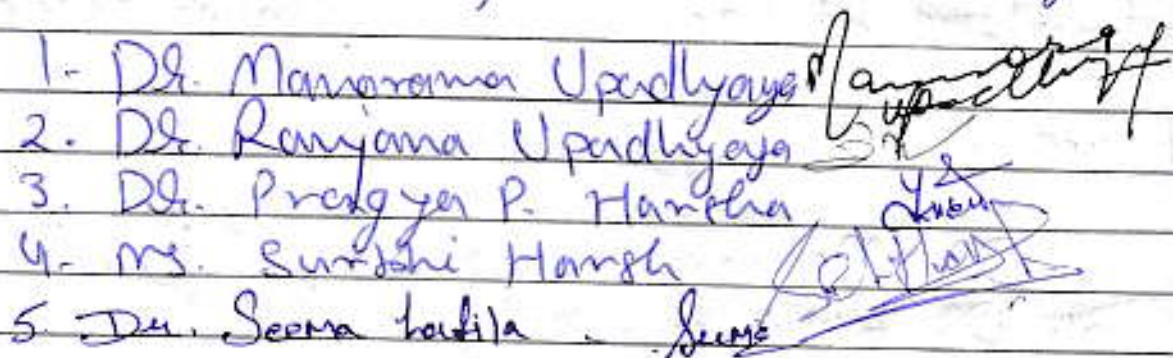 1- Dr. Manorama Upadhyaya Manorama Upadhyay
2. Dr. Ranjana Upadhyaya
3. Dr. Pragya P. Harsha
4- Ms. Surbhi Harsh
5. Dr. Seema - Seema